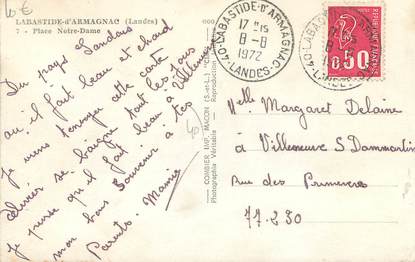 10€
LABASTIDE-d'ARMAGNAC (Landes)
7 - Place Notre-Dame
Du pays Landais
ou il fait beau et chaud
je viens t'envoyer cette carte
Olivier se baigne tout les jours
je pense qu'il fait beau à Villeneuve
mon bon Souvenir a tes
Parents. Mamie
COMBIER IMP. MACON (S.-et-L.)
Photographie Véritable - Reproduction
40-LABASTIDE-d'ARMAGNAC
17H15
8-8
1972
LANDES
REPUBLIQUE FRANÇAISE
0,50
Melle Margaret Delaine
à Villeneuve S Dammartin
Rue des Primeveres
77-230